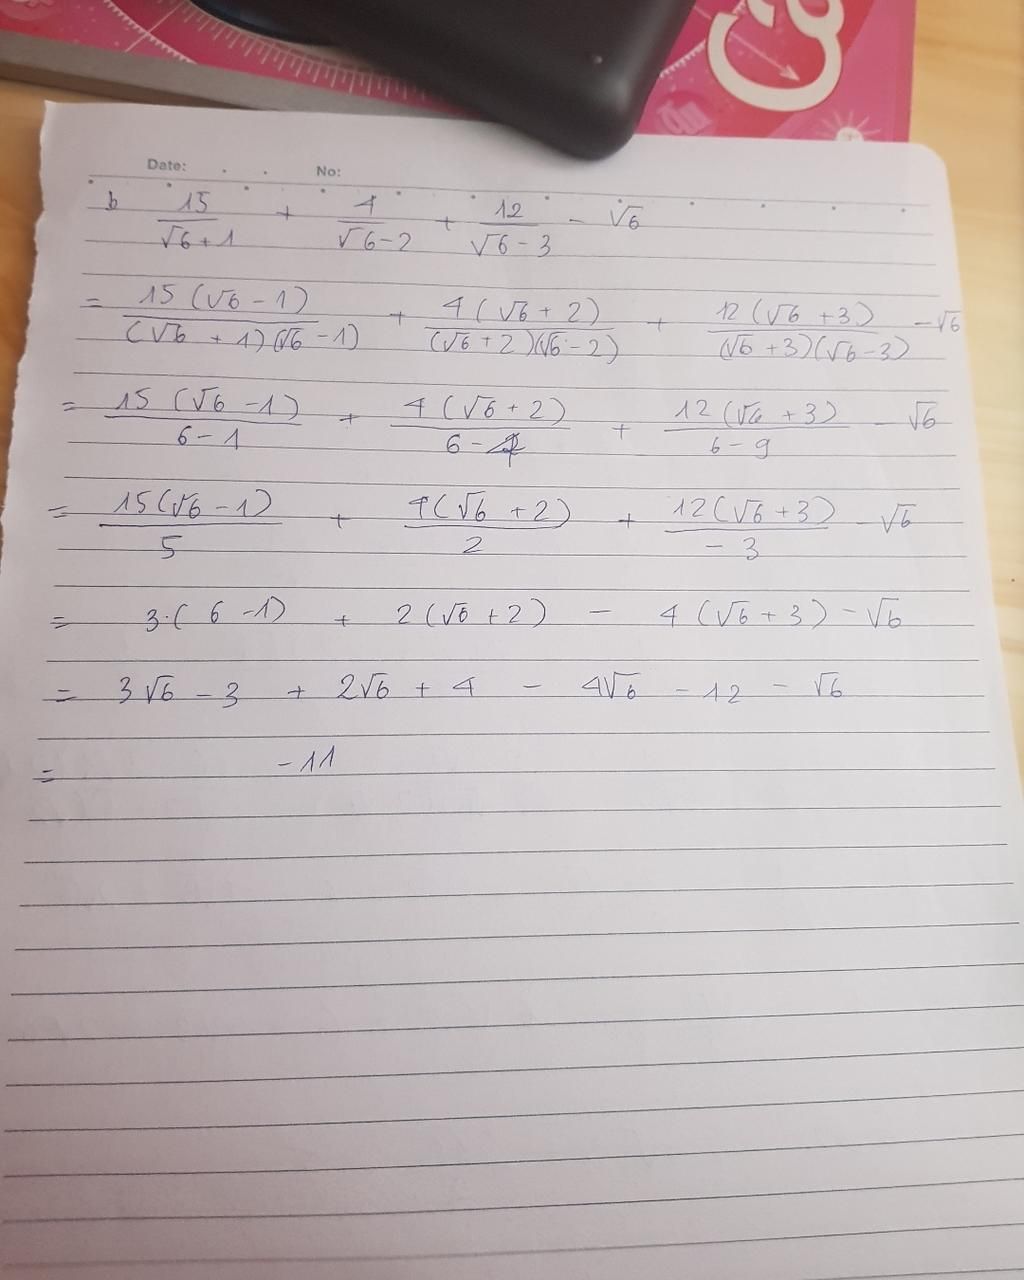 Ca
Date: No:
b 15/(√6+1) + 4/(√6-2) + 12/(√6-3) - √6
= 15(√6-1)/((√6+1)(√6-1)) + 4(√6+2)/((√6+2)(√6-2)) + 12(√6+3)/((√6+3)(√6-3)) - √6
= 15(√6-1)/(6-1) + 4(√6+2)/(6-4) + 12(√6+3)/(6-9) - √6
= 15(√6-1)/5 + 4(√6+2)/2 + 12(√6+3)/(-3) - √6
= 3·(6-1) + 2(√6+2) - 4(√6+3) - √6
= 3√6 - 3 + 2√6 + 4 - 4√6 - 12 - √6
= -11